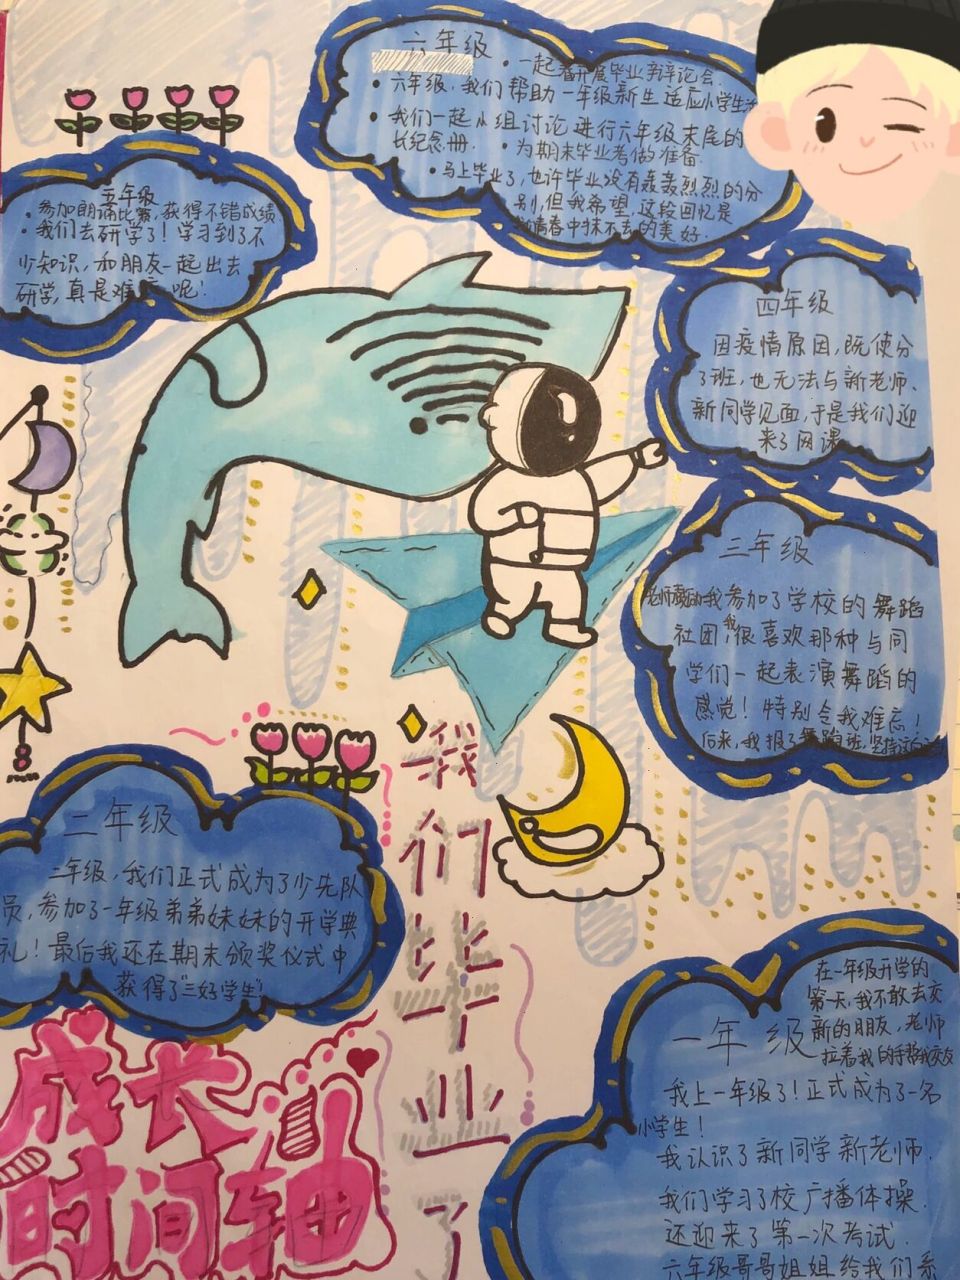 六年级
· 一起看开展毕业辩论会.
· 六年级,我们帮助一年级新生适应小学生
· 我们一起小组讨论进行六年级末尾的
长纪念册. · 为期末毕业考做准备
· 马上毕业了,也许毕业没有轰轰烈烈的分
别,但我希望,这段回忆是
青春中抹不去的美好.
五年级
· 参加朗诵比赛,获得不错成绩
· 我们去研学了!学习到了不
少知识,和朋友一起出去
研学,真是难 呢!
四年级
因疫情原因,既使分
了班,也无法与新老师、
新同学见面,于是我们迎
来了网课
三年级
老师 我参加了学校的舞蹈
社团,我很喜欢那种与同
学们一起表演舞蹈的
感觉!特别令我难忘!
后来,我报了舞蹈班,坚持
二年级
二年级,我们正式成为了少先队
员,参加了一年级弟弟妹妹的开学典
礼!最后我还在期末颁奖仪式中
获得了"三好学生"
我们毕业了
成长
时间轴
一年级
在一年级开学的
第一天,我不敢去交
新的朋友,老师
拉着我的手帮我交友
我上一年级了!正式成为了一名
小学生!
我认识了新同学新老师.
我们学习了校广播体操.
还迎来了第一次考试.
六年级哥哥姐姐给我们系